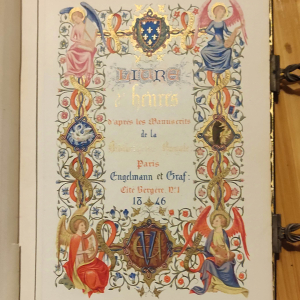 Livre
d'heures
d'après les Manuscrits
de la
Bibliothèque Royale
Paris
Engelmann et Graf:
Cité Bergère, N.º 1
1846